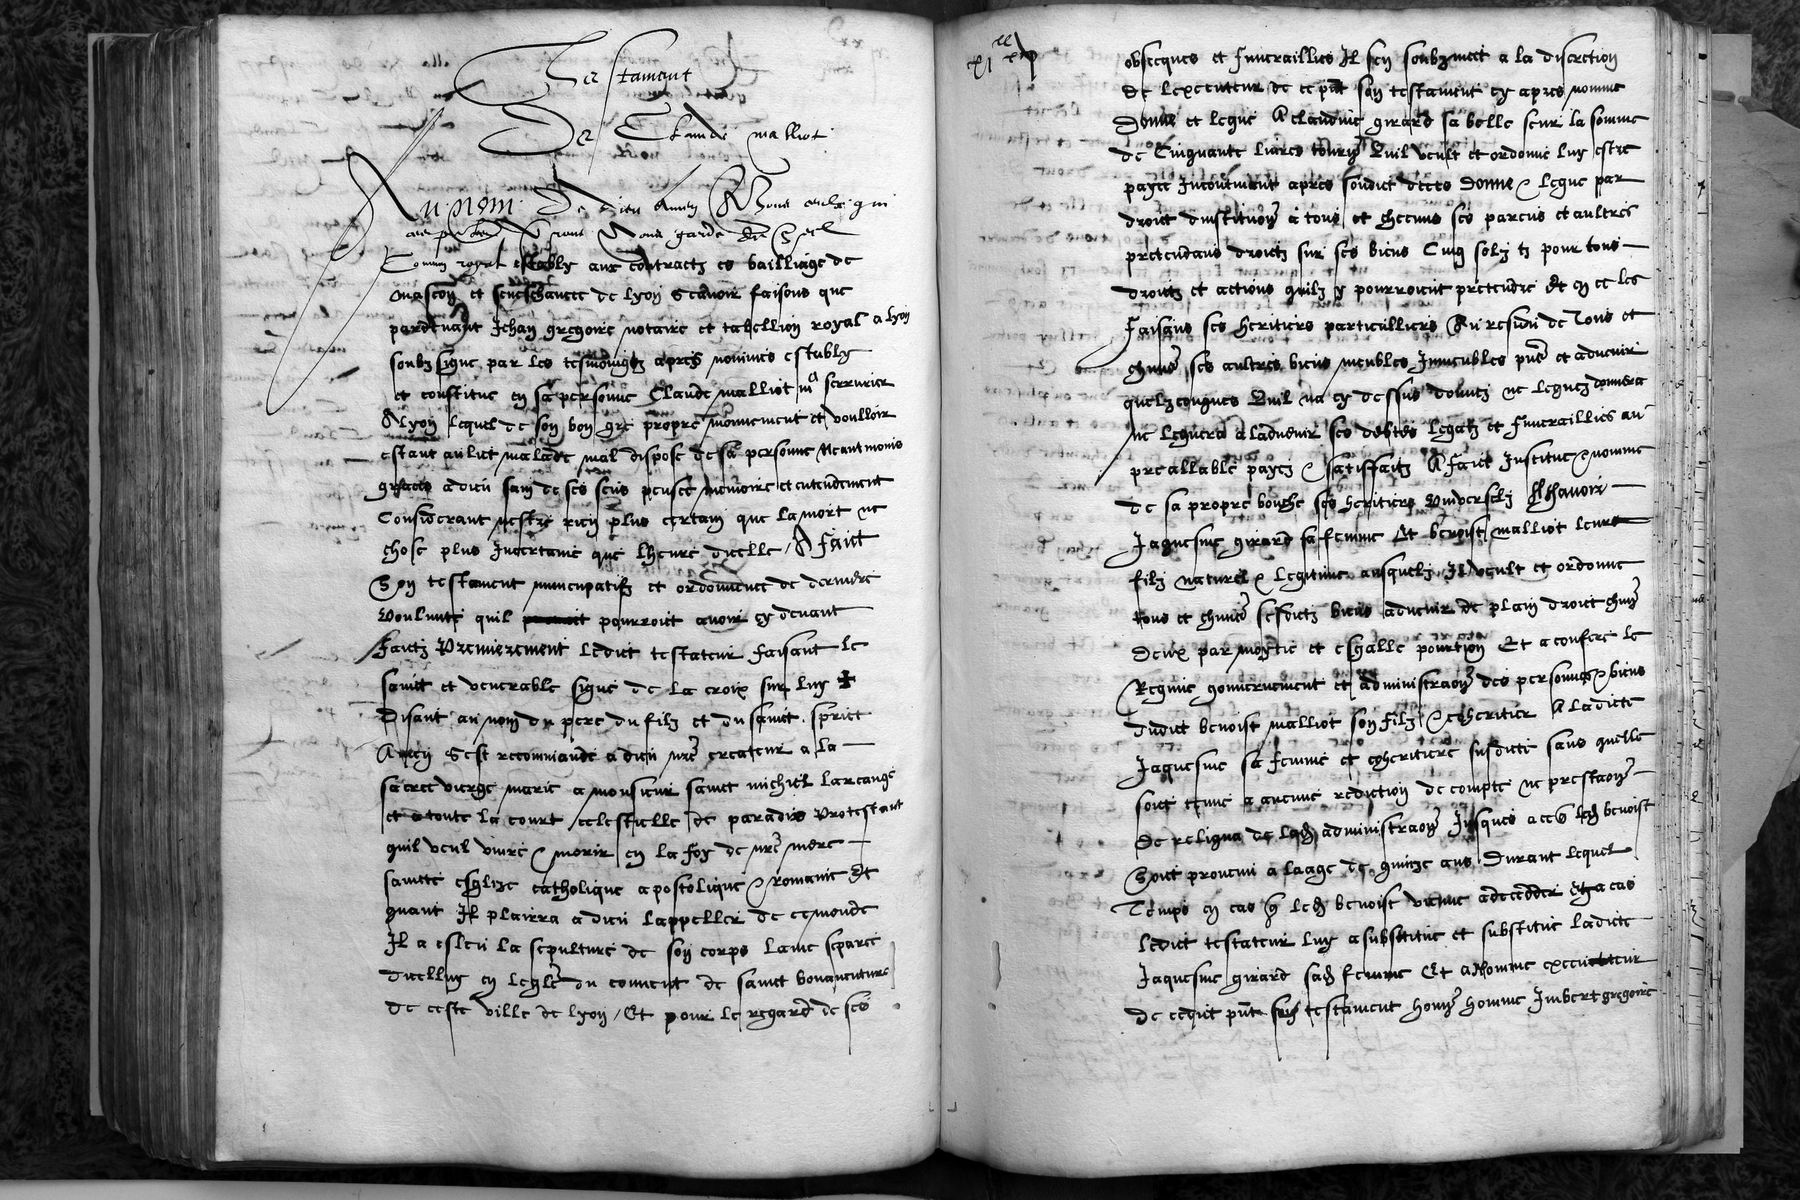 Testament
De Claude malliot
Au nom De dieu Amen A Tous ceulx qui
ces pntes verront Nous garde du Seel
Commun royal estably aux contractz es bailliage de
mascon et seneschaucee de lyon Scavoir faisons que
pardevant Jehan gregoire notaire et tabellion royal a lyon
soubzsigne par les tesmoingtz apres nommes estably
et constitue en sa personne Claude malliot me serrurier
A lyon lequel de son bon gre propre mouvement et voulloir
estant au lict malade mal dispose de sa personne Neantmoins
graces a dieu sain de ses sens pensee memoire et entendement
Considerant nestre rien plus certain que la mort ne
chose plus Incertaine que lheure dicelle / A faict
Son testament nuncupatifz et ordonnance de derniere
voulunte quil pourroit avoir cy devant
Faictz Premierement ledict testateur faisant le
sainct et venerable signe de la croix sur luy +
Disant au nom du pere du filz et du sainct sprict
Amen Sest recommande a dieu nre createur a la
sacree vierge marie a monsieur sainct michiel larcange
et a toute la court celestielle de paradis Protestant
quil veul vivre & morir en la foy de nre mere
saincte esglize catholique apostolique & romaine Et
quant Il plairra a dieu lappeller de ce monde
Il a esleu la sepulture de son corps lame separee
dicelluy en leglē du couvent de sainct bonaventure
de ceste ville de lyon / Et pour le regard de ses
obsecques et funerailles Il sen soubzmect a la discretion
de lexecuteur de ce pnt son testament cy apres nomme
Donne et legue A claudine girard sa belle seur la somme
de Cinquante livres tourn Quil veult et ordonne luy estre
payee Incontinant apres sondict deces Donne & legue par
droict dinstitution a tous et chacuns ses parens et aultres
pretendans droictz sur ses biens Cinq solz tz pour tous
droictz et actions quilz y pourroient pretendre Et en ce les
Faisans ses heritiers particulliers Au residu de Tous et
chuns ses aultres biens meubles Immeubles pns et advenir
quelzconques Quil na cy dessus donnez ne leguez donnera
ne leguera a ladvenir ses debtes legatz et funerailles au
preallable payez & satisffaitz A faict Institue & nomme
de sa propre bouche ses heritiers universelz Ascavoir
Jaquesme girard sa femme Et benoist malliot leurs
filz naturel & legitime ausquelz Il veult et ordonne
tous et chuns sesdictz biens advenir de plain droict chun
deux par moytie et esgalle pourtion Et a confere le
Regime gouvernement et administraon des personnes & biens
dudict benoist malliot son filz & coheritier A ladicte
Jaquesme sa femme et coheritiere susdicte sans quelle
soit tenue a aucune rediction de compte ne prestaon
de reliqua de lad administraon Jusques a ce q led benoist
Soit provenu a laage de quinze ans Durant lequel
Temps en cas q led benoist vienne a decedder Esd cas
ledict testateur luy a substitue et substitue ladicte
Jaquesme girard sad femme Et a Nomme executeur
de cedict pnt son testament hon homme Imbert gregoire